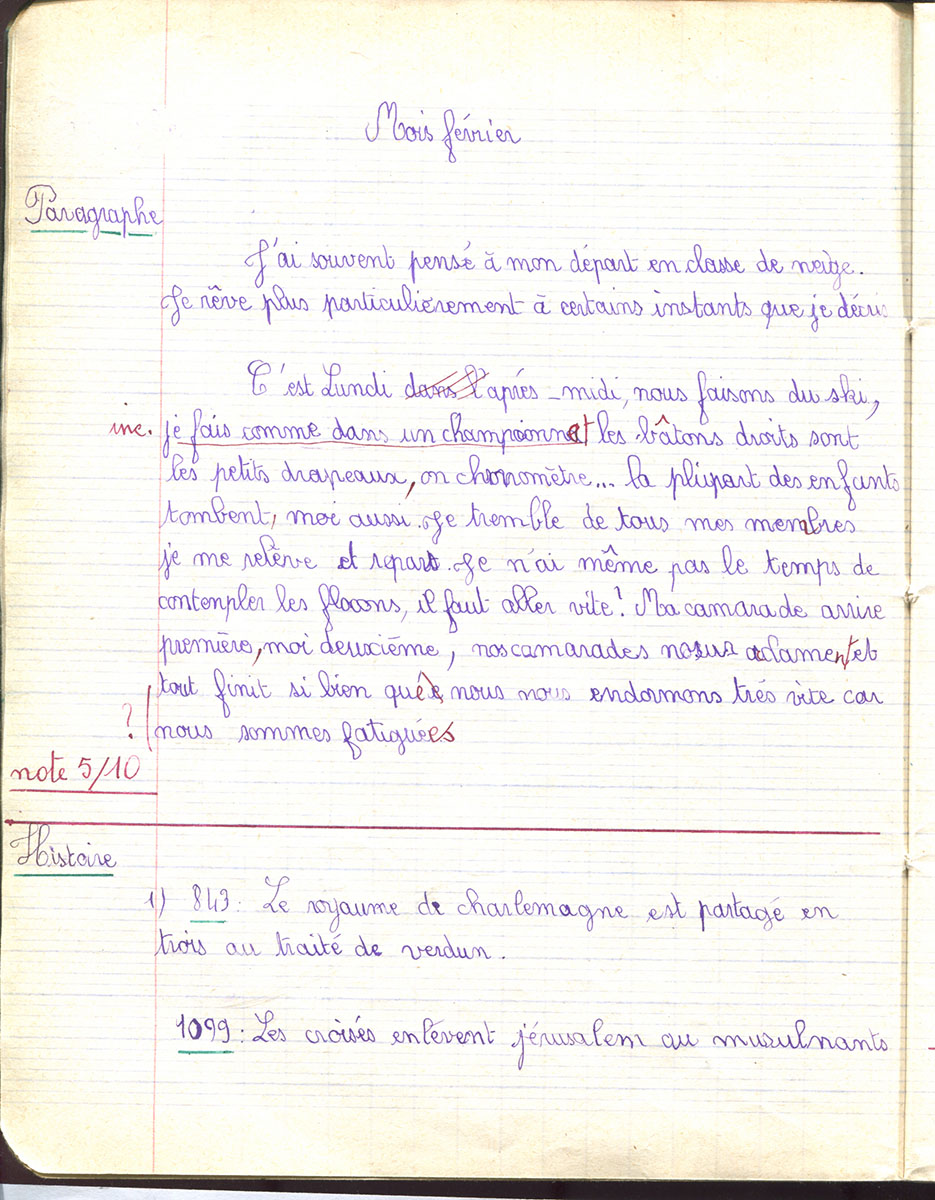 Mois février
Paragraphe
J'ai souvent pensé à mon départ en classe de neige.
Je rêve plus particulièrement à certains instants que je décris
C'est Lundi dans l'après-midi, nous faisons du ski,
inc. je fais comme dans un championnat les bâtons droits sont
les petits drapeaux, on chronomètre... la plupart des enfants
tombent, moi aussi. Je tremble de tous mes membres
je me relève et repars. Je n'ai même pas le temps de
contempler les flocons, il faut aller vite! Ma camarade arrive
première, moi deuxième, nos camarades nous aclament et
tout finit si bien que nous nous endormons très vite car
? nous sommes fatiguées
note 5/10
Histoire
1) 843: Le royaume de charlemagne est partagé en
trois au traité de verdun.
1099: Les croisés enlèvent jérusalem au musulnants